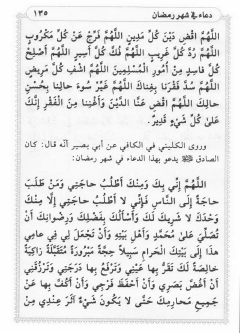 دعاء في شهر رمضان
١٣٥
اللَّهُمَّ اقْضِ دَيْنَ كُلِّ مَدِينٍ اللَّهُمَّ فَرِّجْ عَنْ كُلِّ مَكْرُوبٍ
اللَّهُمَّ رُدَّ كُلَّ غَرِيبٍ اللَّهُمَّ فُكَّ كُلَّ أَسِيرٍ اللَّهُمَّ أَصْلِحْ
كُلَّ فَاسِدٍ مِنْ أُمُورِ الْمُسْلِمِينَ اللَّهُمَّ اشْفِ كُلَّ مَرِيضٍ
اللَّهُمَّ سُدَّ فَقْرَنَا بِغِنَاكَ اللَّهُمَّ غَيِّرْ سُوءَ حَالِنَا بِحُسْنِ
حَالِكَ اللَّهُمَّ اقْضِ عَنَّا الدَّيْنَ وَأَغْنِنَا مِنَ الْفَقْرِ إِنَّكَ
عَلَى كُلِّ شَيْءٍ قَدِيرٌ.
وروى الكليني في الكافي عن أبي بصير أنّه قال: كان
الصادق يدعو بهذا الدعاء في شهر رمضان:
اللَّهُمَّ إِنِّي بِكَ وَمِنْكَ أَطْلُبُ حَاجَتِي وَمَنْ طَلَبَ
حَاجَةً إِلَى النَّاسِ فَإِنِّي لَا أَطْلُبُ حَاجَتِي إِلَّا مِنْكَ
وَحْدَكَ لَا شَرِيكَ لَكَ وَأَسْأَلُكَ بِفَضْلِكَ وَرِضْوَانِكَ أَنْ
تُصَلِّيَ عَلَى مُحَمَّدٍ وَأَهْلِ بَيْتِهِ وَأَنْ تَجْعَلَ لِي فِي عَامِي
هَذَا إِلَى بَيْتِكَ الْحَرَامِ سَبِيلاً حِجَّةً مَبْرُورَةً مُتَقَبَّلَةً زَاكِيَةً
خَالِصَةً لَكَ تَقَرُّ بِهَا عَيْنِي وَتَرْفَعُ بِهَا دَرَجَتِي وَتَرْزُقَنِي
أَنْ أَغُضَّ بَصَرِي وَأَنْ أَحْفَظَ فَرْجِي وَأَنْ أَكُفَّ بِهَا عَنْ
جَمِيعِ مَحَارِمِكَ حَتَّى لَا يَكُونَ شَيْءٌ آثَرَ عِنْدِي مِنْ